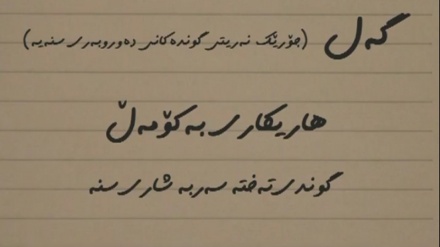 گەل (جۆرێک نەریتی گوندەکانی دەوروبەری سنەیە)
هاریکاری بەکۆمەڵ
گوندی تەختە سەربە شاری سنە